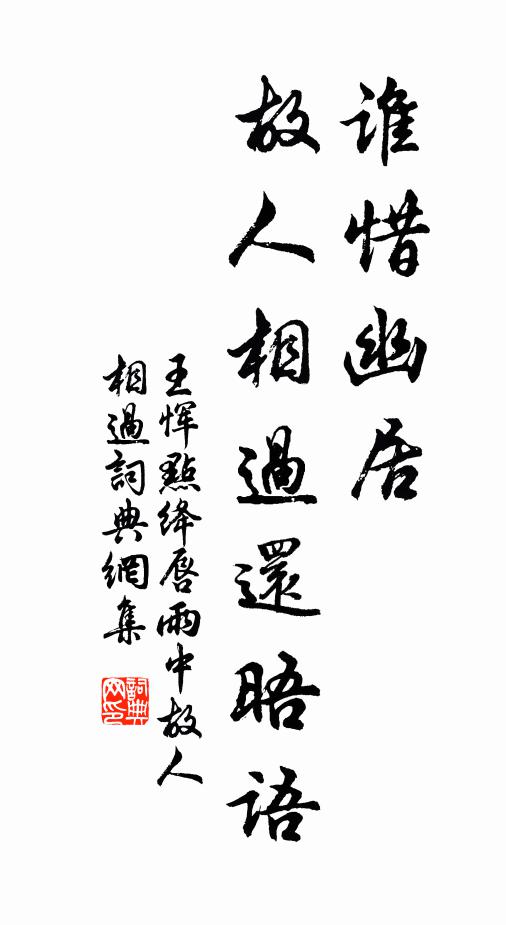 誰惜幽居
故人相過還晤語
王惲點絳唇雨中故人
相過詞典網集
詞典
网印